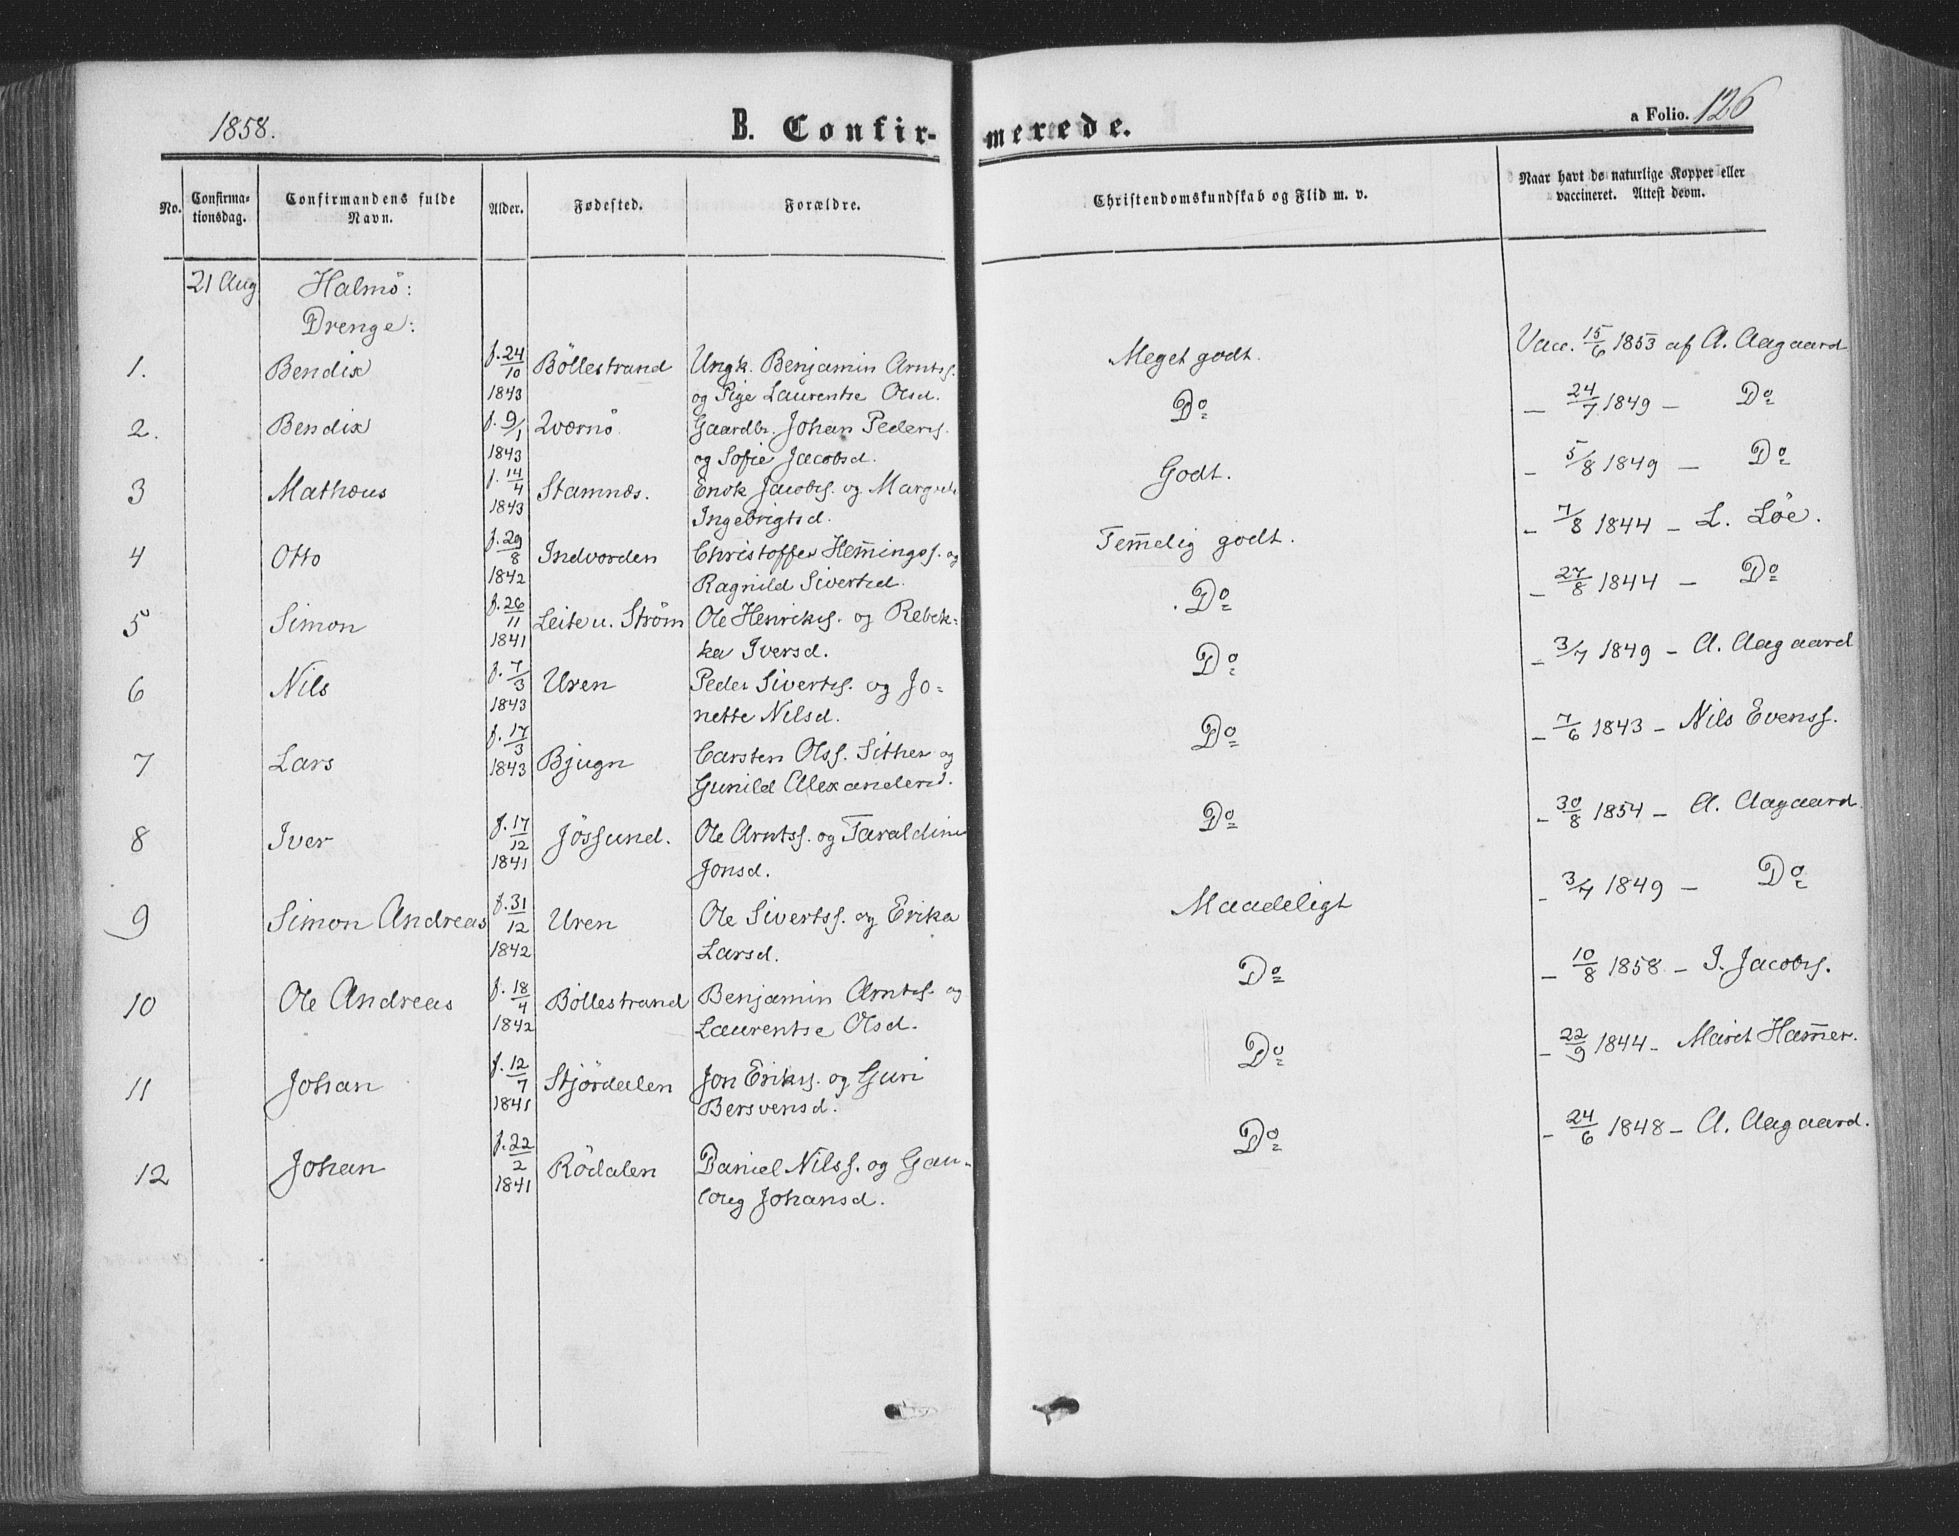 1858.
B. Confir-
merede.
a Folio. 126
No.
Confirma-
tionsdag.
Confirmandens fulde
Navn.
Alder.
Fødested.
Forældre.
Christendomskundskab og Flid m. v.
Naar havt de naturlige Kopper eller
vaccineret. Attest derom.
21 Aug.
Halmö:
Drenge:
1. Bendix f. 24/10 1843 Böllestrand Ungk. Benjamin Arntss. Meget godt. Vacc. 15/6 1853 af A. Aagaard
og Pige Laurentse Olsd.
2. Bendix f. 9/1 1843 Qværnö Gaardbr. Johan Peders. Do - 24/7 1849 - Do
og Sofie Jacobsd.
3 Mathæus f. 14/4 1843 Stamnæs. Enok Jacobs. og Margrete Godt. - 5/8 1849 - Do
Ingebrigtsd.
4 Otto f. 29/8 1842 Indvorden Christoffer Hemings. og Temelig godt. - 7/8 1844 - L. Löe.
Ragnild Sivertsd.
5 Simon f. 26/11 1841 Leite u. Ström Ole Henriks. og Rebek- Do - 27/8 1844 - Do
ka Iversd.
6 Nils f. 7/3 1843 Uren Peder Siverts. og Jo- Do - 3/7 1849 - A. Aagaard
nette Nilsd.
7 Lars f. 17/3 1843 Bjugn Carsten Olss. Sither og Do - 7/6 1843 - Nils Evenss.
Gunild Alexandersd.
8 Iver f. 17/12 1841 Jössund. Ole Arntss. og Taraldine Do - 30/8 1854 - A. Aagaard.
Jonsd.
9 Simon Andreas f. 31/12 1842 Uren Ole Sivertss. og Erika Maadeligt - 3/7 1849 - Do
Larsd.
10 Ole Andreas f. 18/4 1842 Böllestrand Benjamin Arnts. og Do - 10/8 1858 - J. Jacobs.
Laurentse Olsd.
11 Johan f. 12/7 1841 Stjördalen Jon Eriks. og Guri Do - 22/9 1844 - Maret Hamer.
Bersvensd.
12 Johan f. 22/2 1841 Rödalen Daniel Nilss. og Gau- Do - 24/6 1848 - A. Aagaard.
loug Johansd.